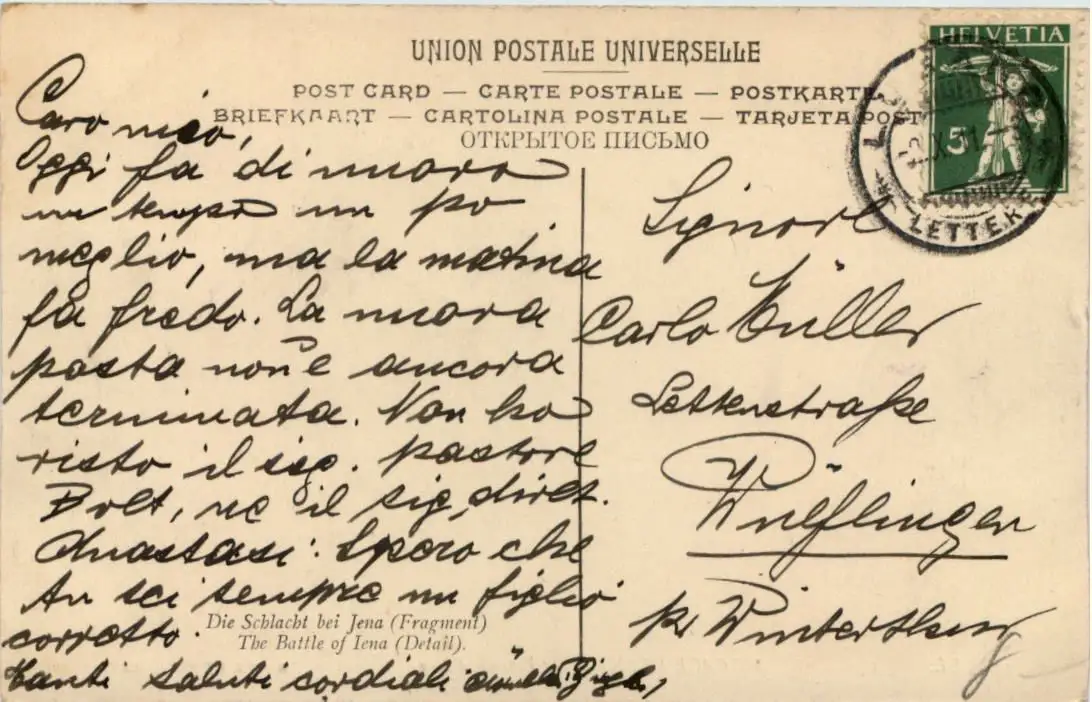 UNION POSTALE UNIVERSELLE
POST CARD — CARTE POSTALE — POSTKARTE
BRIEFKAART — CARTOLINA POSTALE — TARJETA POST
ОТКРЫТОЕ ПИСЬМО
HELVETIA
5
LETTER
Caro mio,
Oggi fa di nuovo
un tempo un po
meglio, ma la matina
fa fredo. La nuova
posta non è ancora
terminata. Non ho
visto il sig. pastore
Bolt, ne il sig. diret.
Anastasi. Spero che
tu sei sempre un figlio
corretto.
Tanti saluti cordiali
Signore
Carlo Müller
Lettenstraße
Wülflingen
pr Winterthur
Die Schlacht bei Jena (Fragment)
The Battle of Iena (Detail).